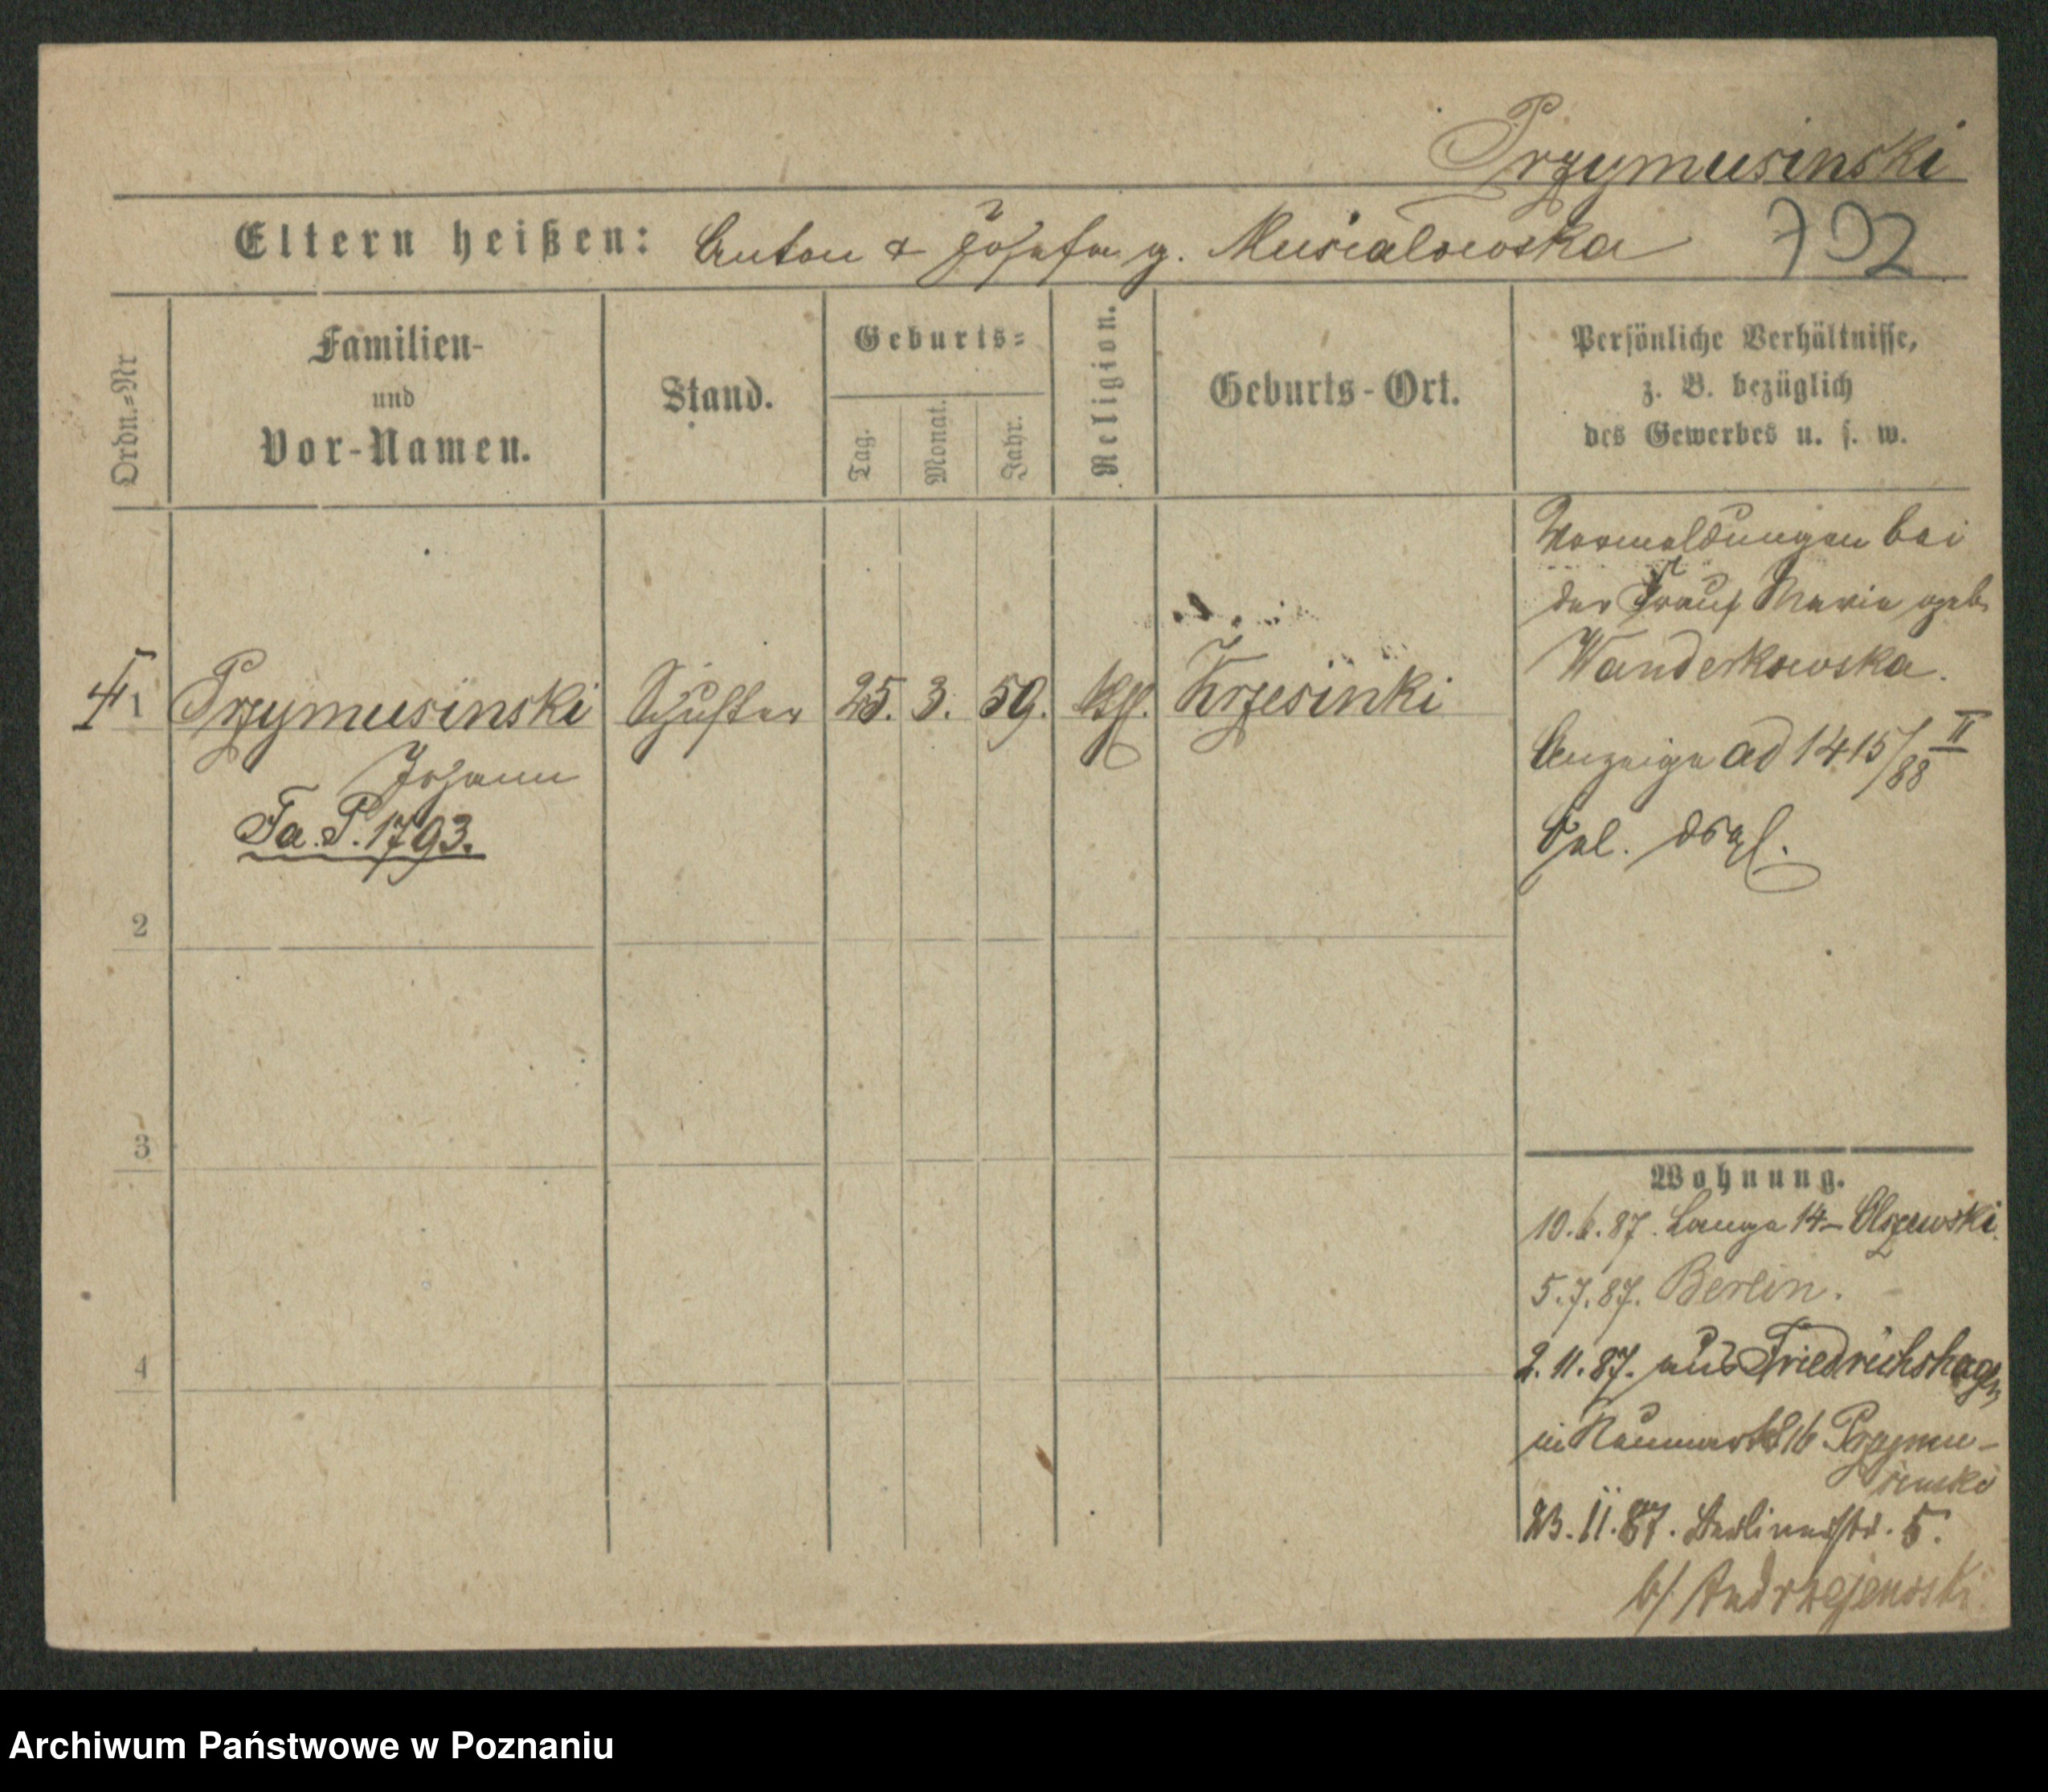 Przymusinski
Eltern heißen: Anton & Josefa g. Musialowska 792
Ordn.=Nr
Familien-
und
Vor-Namen.
Stand.
Geburts=
Tag.
Monat.
Jahr.
Religion.
Geburts-Ort.
Persönliche Verhältnisse,
z. B. bezüglich
des Gewerbes u. s. w.
1 Przymusinski Schuster 25. 3. 59. kath. Krzesinki
Johann
Fa. P. 1793.
Vormeldungen bei
der Frau Marie geb.
Wanderkowska.
Anzeige ad 1415/88 II
dsgl.
2
3
4
Wohnung.
10.6.87. Lange 14 – Olszewski.
5.7.87. Berlin.
2.11.87. aus Friedrichshagen
in Neumarkt 16 Przymu-
sinski
23.11.87. Berlinerstr. 5.
b/ Andrzejewski
Archiwum Państwowe w Poznaniu